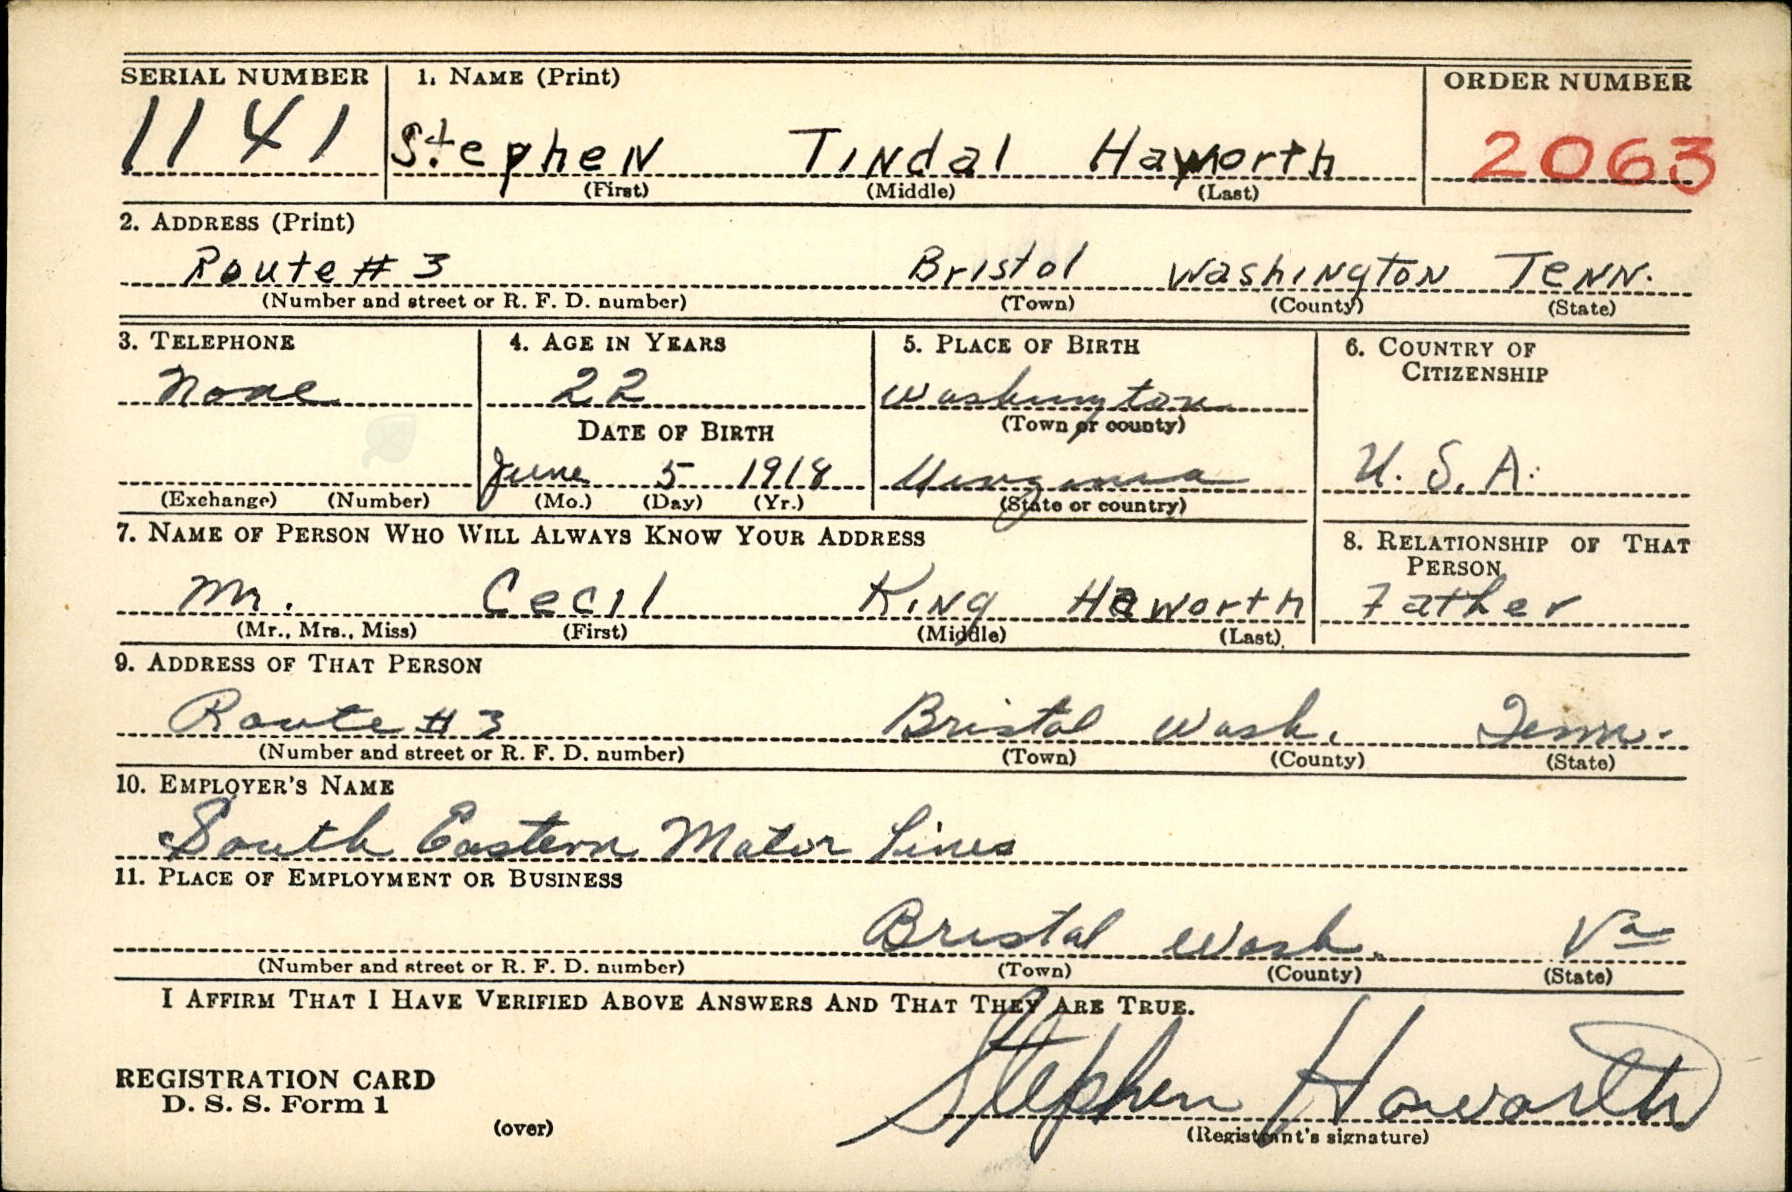 SERIAL NUMBER 1. NAME (Print) ORDER NUMBER
1141 Stephen Tindal Haworth 2063
(First) (Middle) (Last)
2. ADDRESS (Print)
Route # 3 Bristol Washington Tenn.
(Number and street or R. F. D. number) (Town) (County) (State)
3. TELEPHONE 4. AGE IN YEARS 5. PLACE OF BIRTH 6. COUNTRY OF CITIZENSHIP
None 22 Washington
(Town or county)
DATE OF BIRTH
June 5 1918 Virginia U. S. A.
(Exchange) (Number) (Mo.) (Day) (Yr.) (State or country)
7. NAME OF PERSON WHO WILL ALWAYS KNOW YOUR ADDRESS 8. RELATIONSHIP OF THAT PERSON
Mr. Cecil King Haworth Father
(Mr., Mrs., Miss) (First) (Middle) (Last)
9. ADDRESS OF THAT PERSON
Route # 3 Bristol Wash. Tenn.
(Number and street or R. F. D. number) (Town) (County) (State)
10. EMPLOYER'S NAME
South Eastern Motor Lines
11. PLACE OF EMPLOYMENT OR BUSINESS
Bristol Wash. Va
(Number and street or R. F. D. number) (Town) (County) (State)
I AFFIRM THAT I HAVE VERIFIED ABOVE ANSWERS AND THAT THEY ARE TRUE.
Stephen Haworth
REGISTRATION CARD
D. S. S. Form 1
(over) (Registrant's signature)